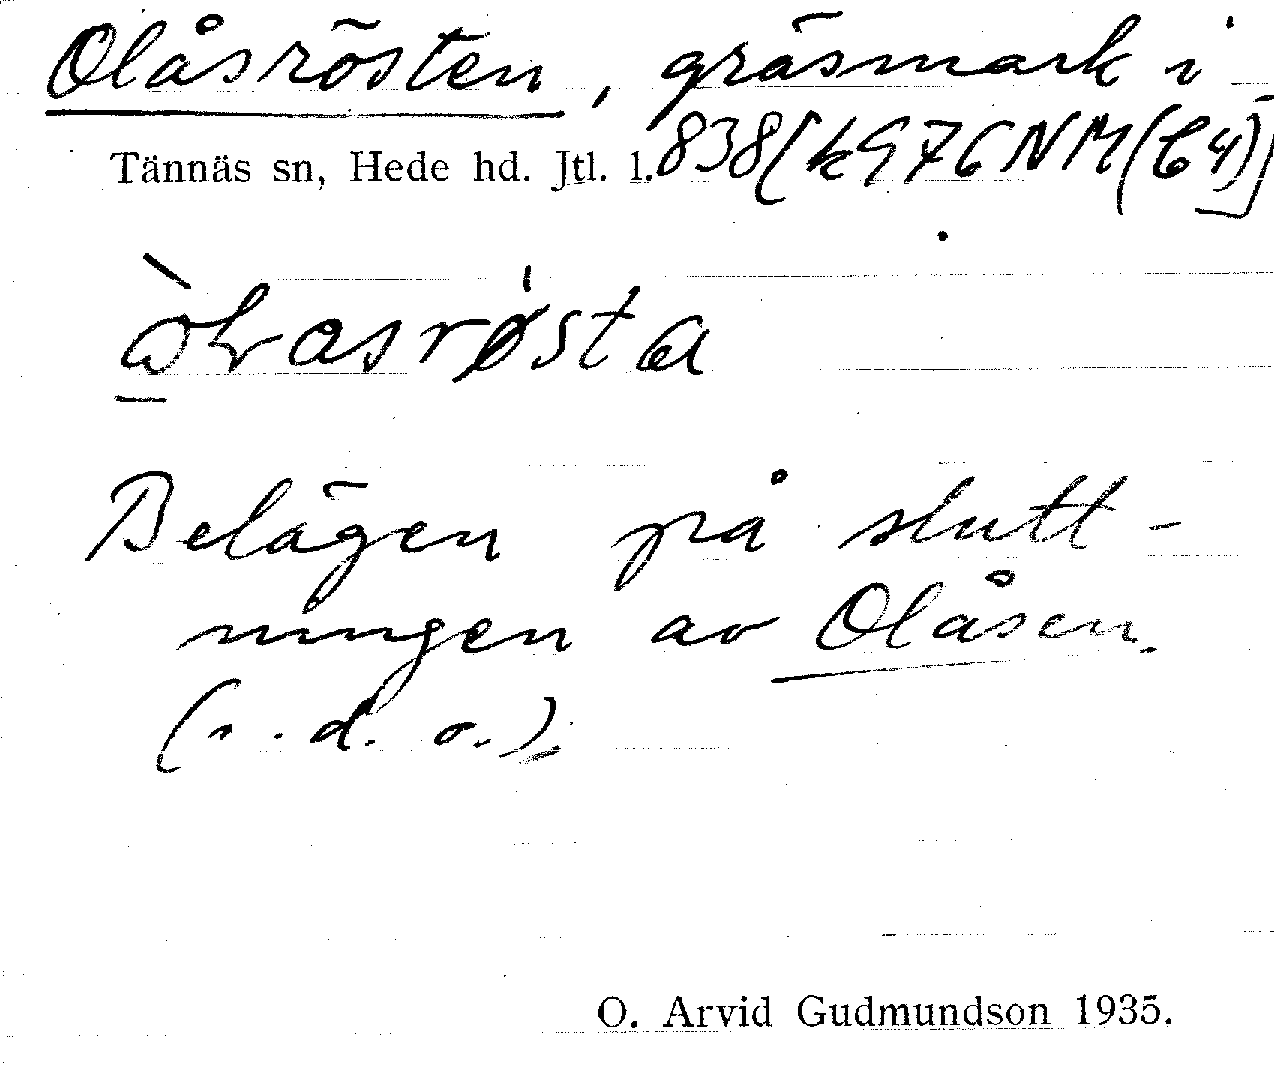 Olåsrösten, gräsmark i
Tännäs sn, Hede hd. Jtl. l. 838[k976NM(C4)]
Belägen på slutt-
ningen av Olåsen.
(s.d.o.).
O. Arvid Gudmundson 1935.